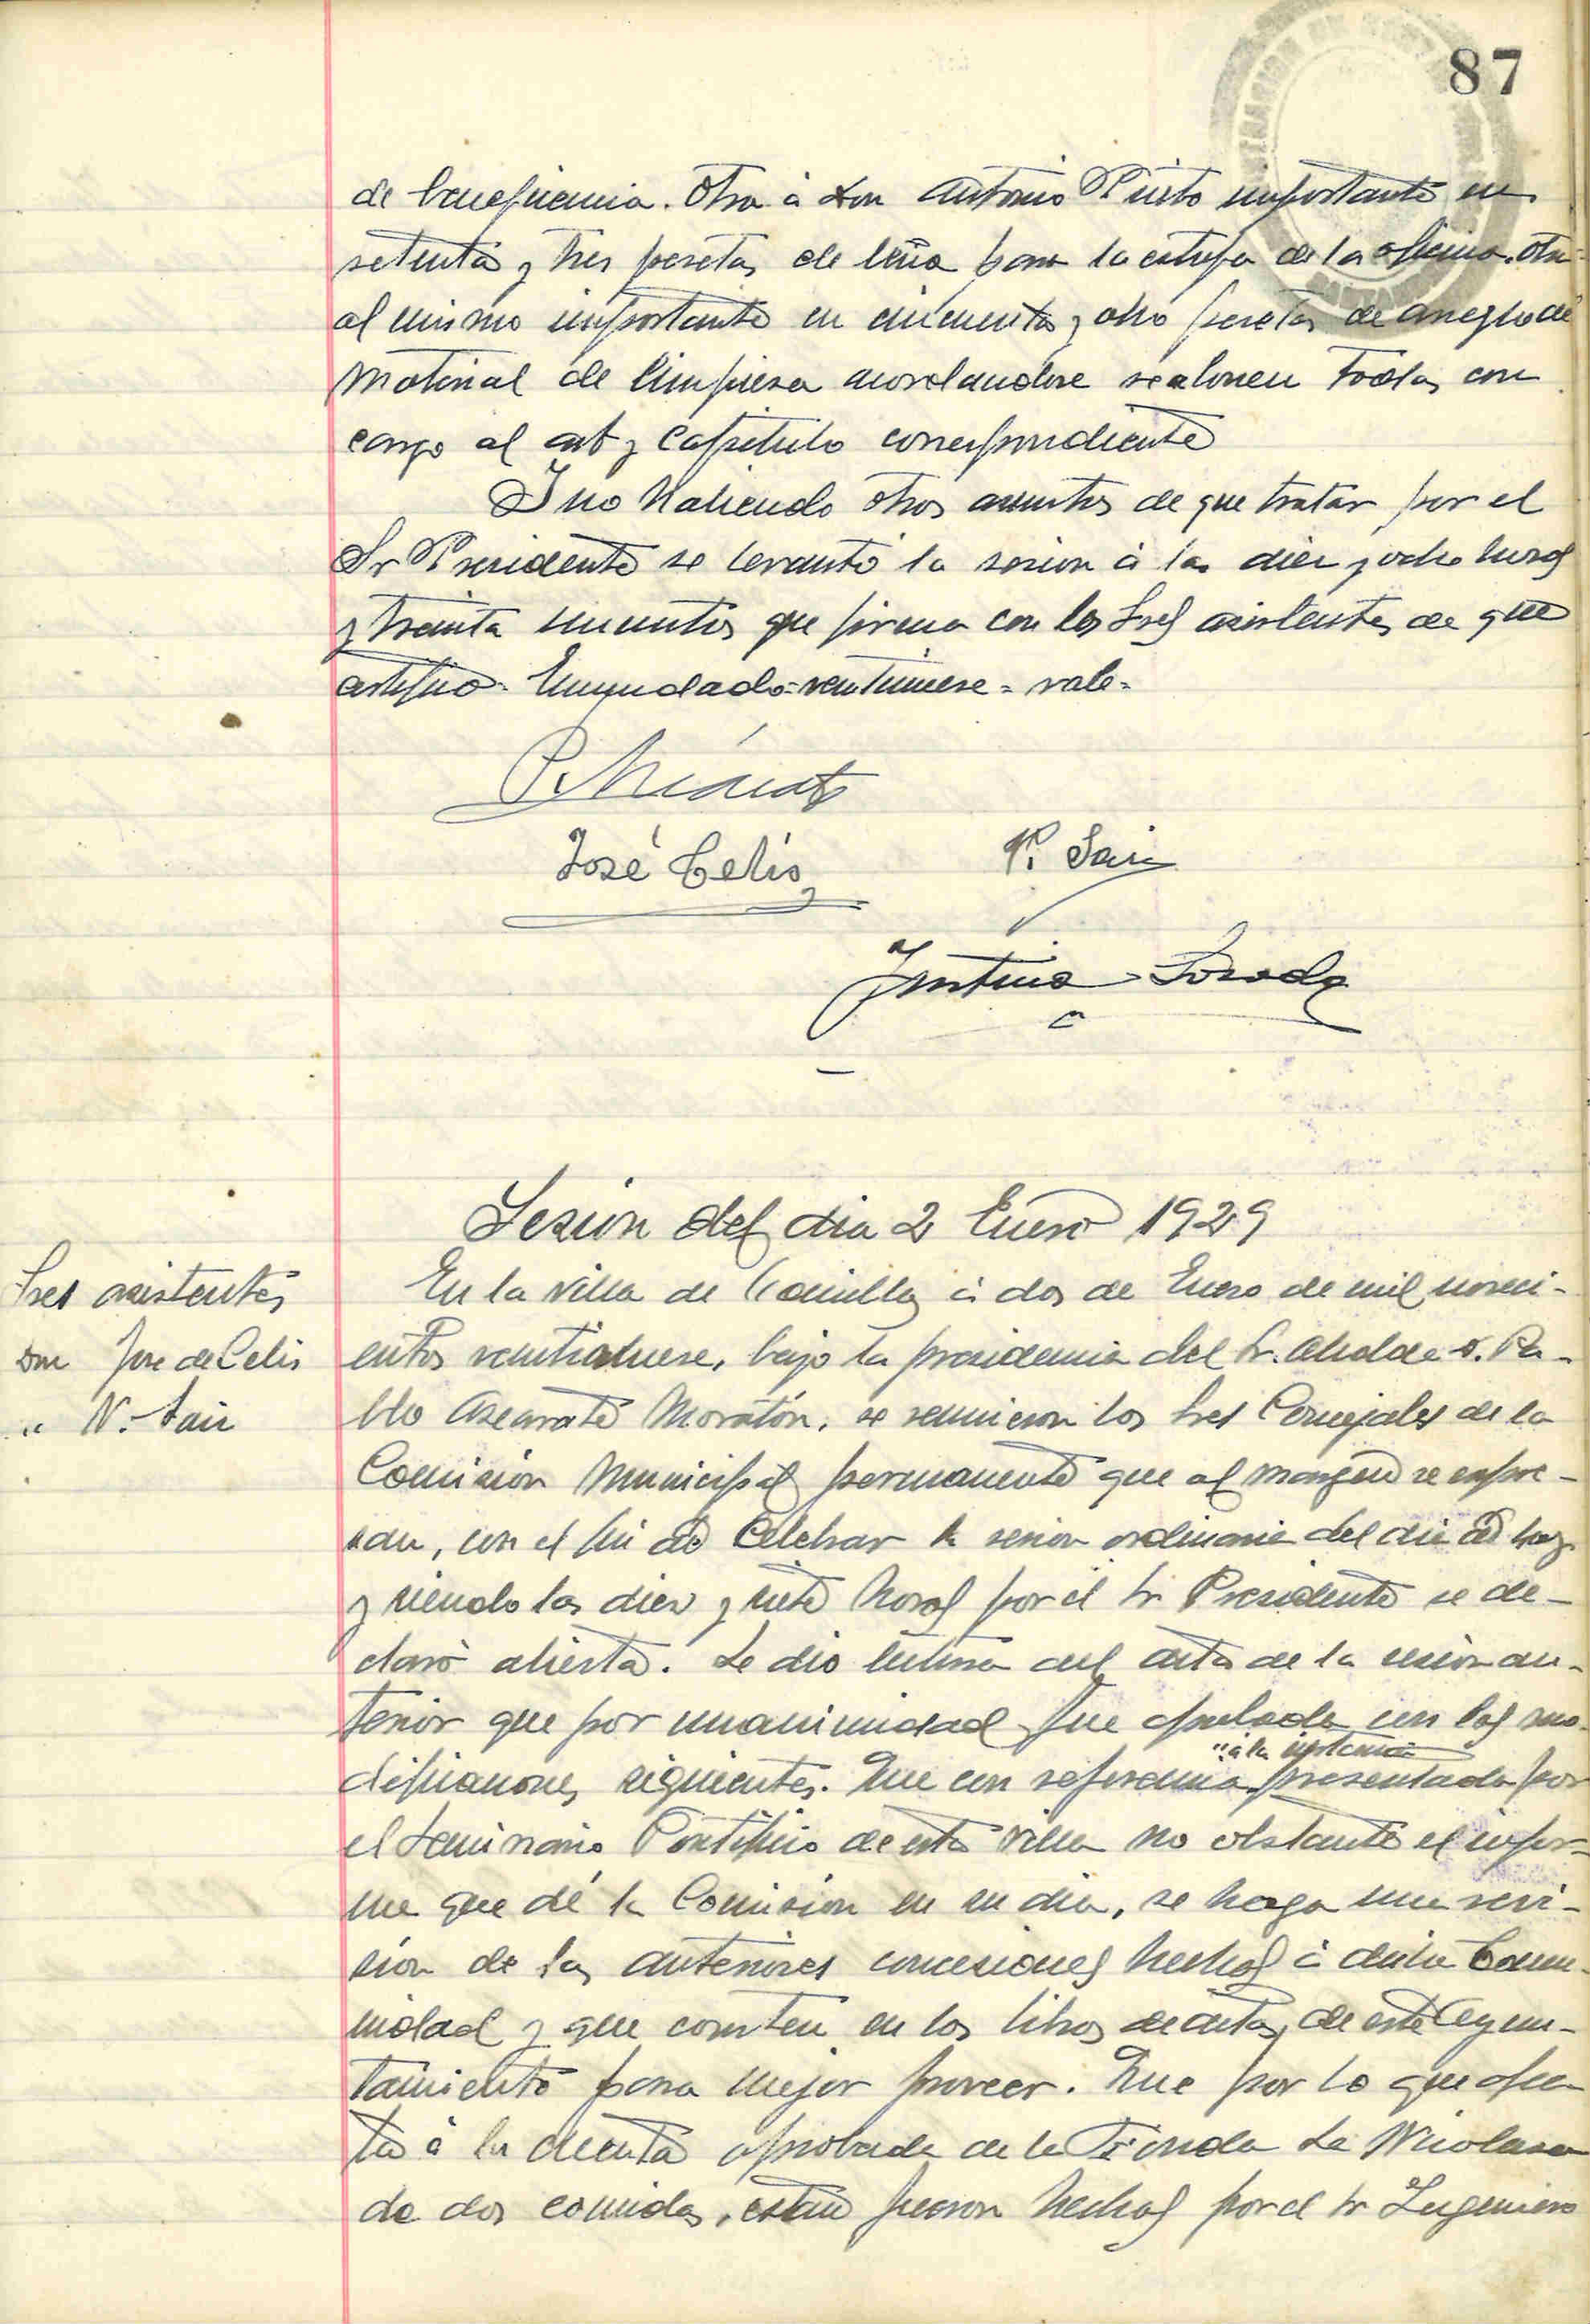 87
de beneficencia. Otra à Don Antonio Pinto importante en
setenta y tres pesetas de leña para la estufa de la oficina. Otra
al mismo importante en cincuenta y ocho pesetas de arreglo de
material de limpieza acordandose se abonen todas con
cargo al art y Capitulo correspondiente
Y no habiendo otros asuntos de que tratar por el
Sr Presidente se levantó la sesion à las diez y ocho horas
y treinta minutos que firma con los Sres asistentes de que
certifico = Enmendado = = vale =
José Celis
N. Sainz
Losada
Sesión del dia 2 Enero 1929
Sres asistentes
Don Jose de Celis
" N. Sainz
En la villa de Comillas à dos de Enero de mil noveci-
entos veintinueve, bajo la presidencia del Sr. Alcalde D. Pa-
blo Azcarate Moratón, se reunieron los Sres Concejales de la
Comisión Municipal permanente que al margen se expre-
san, con el fin de celebrar la sesion ordinaria del dia de hoy
y siendo las diez y siete horas por el Sr Presidente se de-
claró abierta. Se dio lectura del acta de la sesion an-
terior que por unanimidad fue aprobada con las mo-
"à la instancia
dificaciones siguientes. Que con referencia presentada por
el Seminario Pontificio de esta villa no obstante el infor-
me que dé la Comisión en su dia, se haga una revi-
sion de las anteriores concesiones hechas à dicha Comu-
nidad y que consten en los libros de actas, de este Ayun-
tamiento para mejor proveer. Que por lo que afec-
ta à la cuenta aprobada de la Fonda La Nicolasa
de dos comidas, estas fueron hechas por el Sr Ingeniero